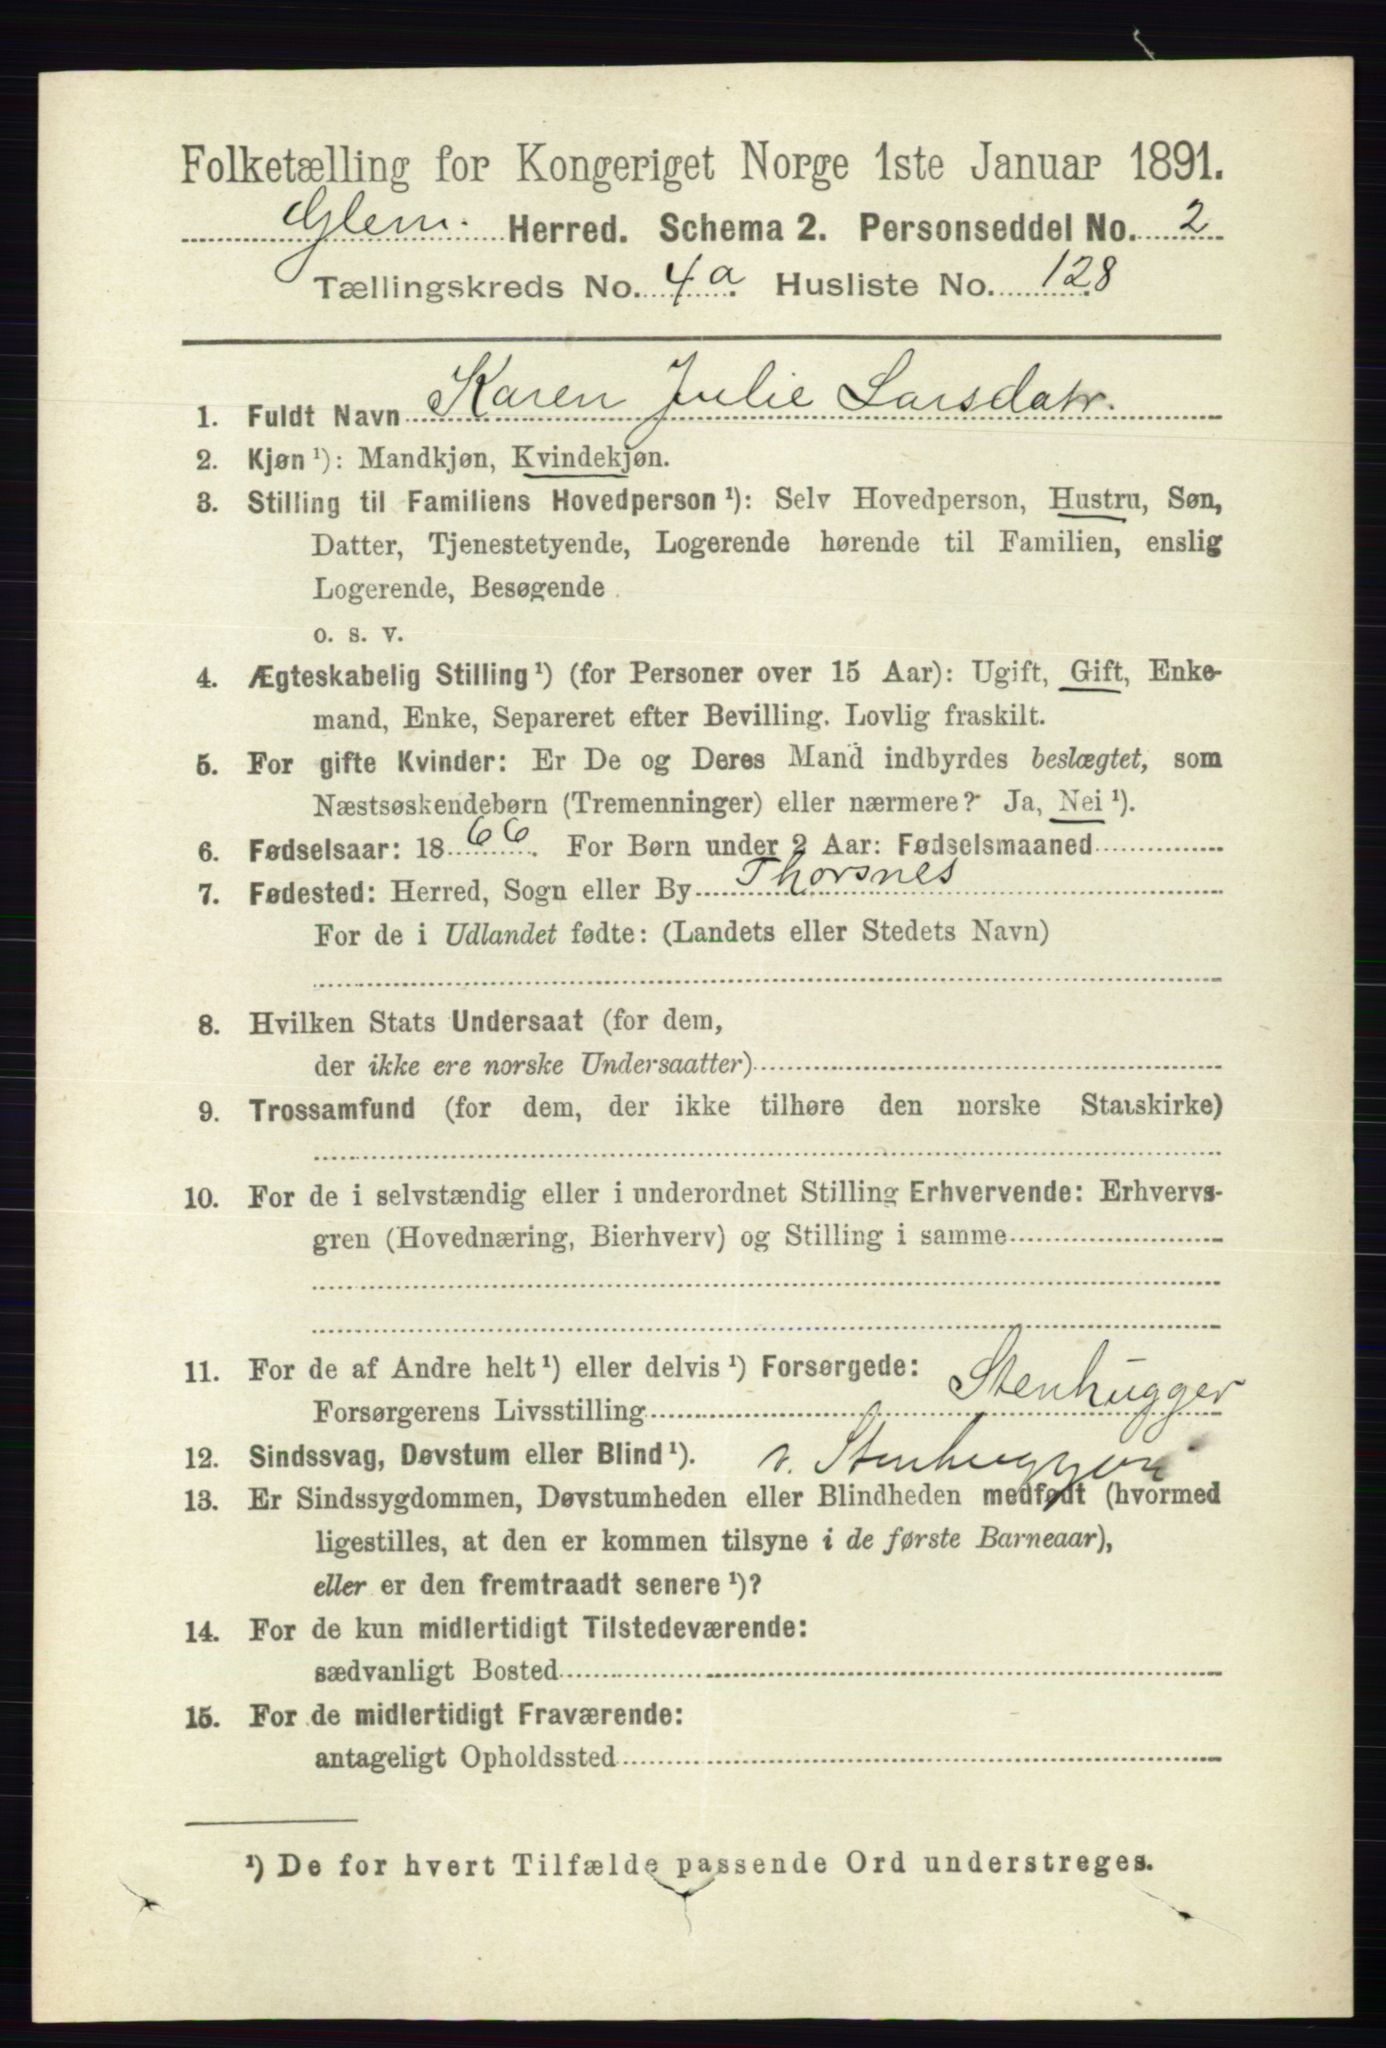 Folketælling for Kongeriget Norge 1ste Januar 1891.
Glem. Herred. Schema 2. Personseddel No. 2
Tællingskreds No. 4a. Husliste No. 128
1. Fuldt Navn Karen Julie Larsdatr.
2. Kjøn¹): Mandkjøn, Kvindekjøn.
3. Stilling til Familiens Hovedperson¹): Selv Hovedperson, Hustru, Søn,
Datter, Tjenestetyende, Logerende hørende til Familien, enslig
Logerende, Besøgende
o. s. v.
4. Ægteskabelig Stilling¹) (for Personer over 15 Aar): Ugift, Gift, Enke-
mand, Enke, Separeret efter Bevilling. Lovlig fraskilt.
5. For gifte Kvinder: Er De og Deres Mand indbyrdes beslægtet, som
Næstsøskendebørn (Tremenninger) eller nærmere? Ja, Nei¹).
6. Fødselsaar: 1866. For Børn under 2 Aar: Fødselsmaaned
7. Fødested: Herred, Sogn eller By Thorsnes
For de i Udlandet fødte: (Landets eller Stedets Navn)
8. Hvilken Stats Undersaat (for dem,
der ikke ere norske Undersaatter)
9. Trossamfund (for dem, der ikke tilhøre den norske Statskirke)
10. For de i selvstændig eller i underordnet Stilling Erhvervende: Erhvervs-
gren (Hovednæring, Bierhverv) og Stilling i samme
11. For de af Andre helt¹) eller delvis¹) Forsørgede:
Forsørgerens Livsstilling Stenhugger
12. Sindssvag, Døvstum eller Blind¹). v. Stenhuggeri
13. Er Sindssygdommen, Døvstumheden eller Blindheden medfødt (hvormed
ligestilles, at den er kommen tilsyne i de første Barneaar),
eller er den fremtraadt senere¹)?
14. For de kun midlertidigt Tilstedeværende:
sædvanligt Bosted
15. For de midlertidigt Fraværende:
antageligt Opholdssted
¹) De for hvert Tilfælde passende Ord understreges.